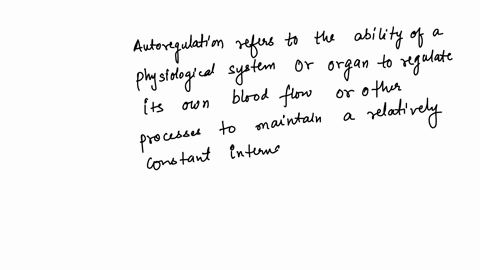 Autoregulation refers to the ability of a
physiological system or organ to regulate
its own blood flow or other
processes to maintain a relatively
constant interne